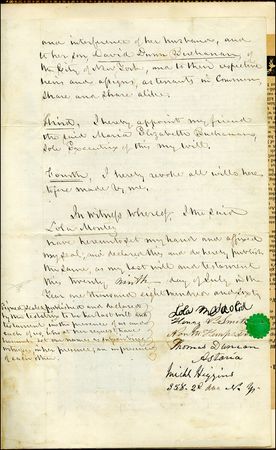 and interference of her husband, and
to her son David Dunn Buchanan, of
the City of New York, and to their respective
heirs and assigns, as tenants in Common,
Share and Share alike.
Third, I hereby appoint my friend
the said Maria Elizabeth Buchanan,
Sole Executrix of this my will.
Fourth, I hereby revoke all wills here-
tofore made by me.
In Witness Whereof, I the said
Lola Montez
have hereunto set my hand and affixed
my seal, and declared this and do hereby publish
the same, as my last will and testament
this Twenty day of July in the
Year one thousand eight hundred and sixty
Signed, Sealed, published and declared
by the testatrix to be her last will and
testament in the presence of us and
each of us, who at her request have
our names as
in her presence, and in presence
of each other.
Lola Montez
Henry
Thomas Duncan
Astoria
Michl Higgins
358. 2d N. Y.